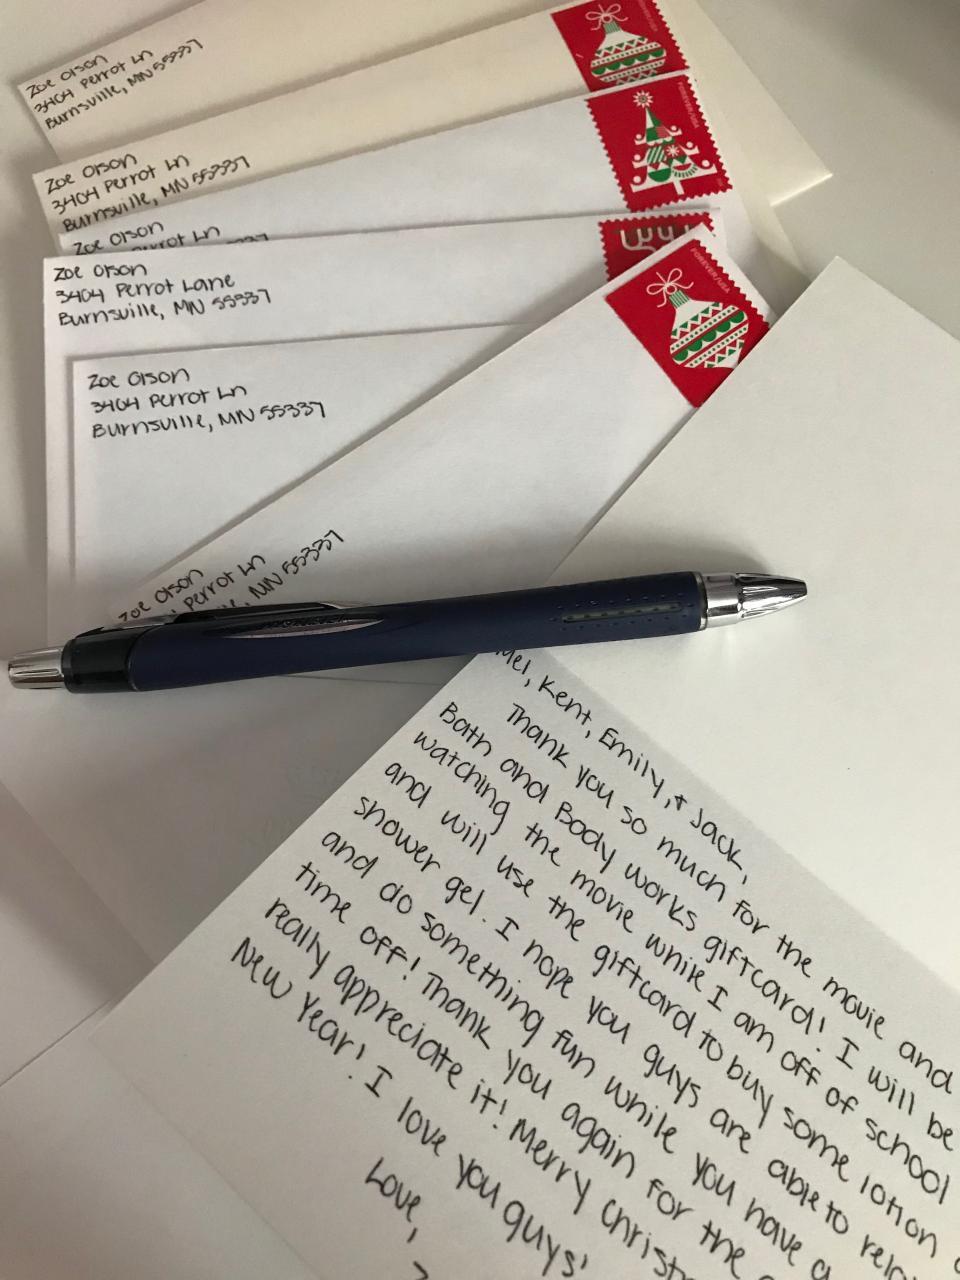 Zoe Olson
3404 Perrot Ln
Burnsville, MN 55337
Zoe Olson
3404 Perrot Ln
Burnsville, MN 55337
Zoe Olson
Perrot Ln
Zoe Olson
3404 Perrot Lane
Burnsville, MN 55337
Zoe Olson
3404 Perrot Ln
Burnsville, MN 55337
Zoe Olson
Perrot Ln
MN 55337
FOREVER/USA
FOREVER/USA
Mel, Kent, Emily, & Jack,
Thank you so much for the movie and
Bath and Body works giftcard! I will be
watching the movie while I am off of school
and will use the giftcard to buy some lotion
shower gel. I hope you guys are able to
and do something fun while you have
time off! Thank you again for the
really appreciate it! Merry
New Year! I love you guys!
Love,